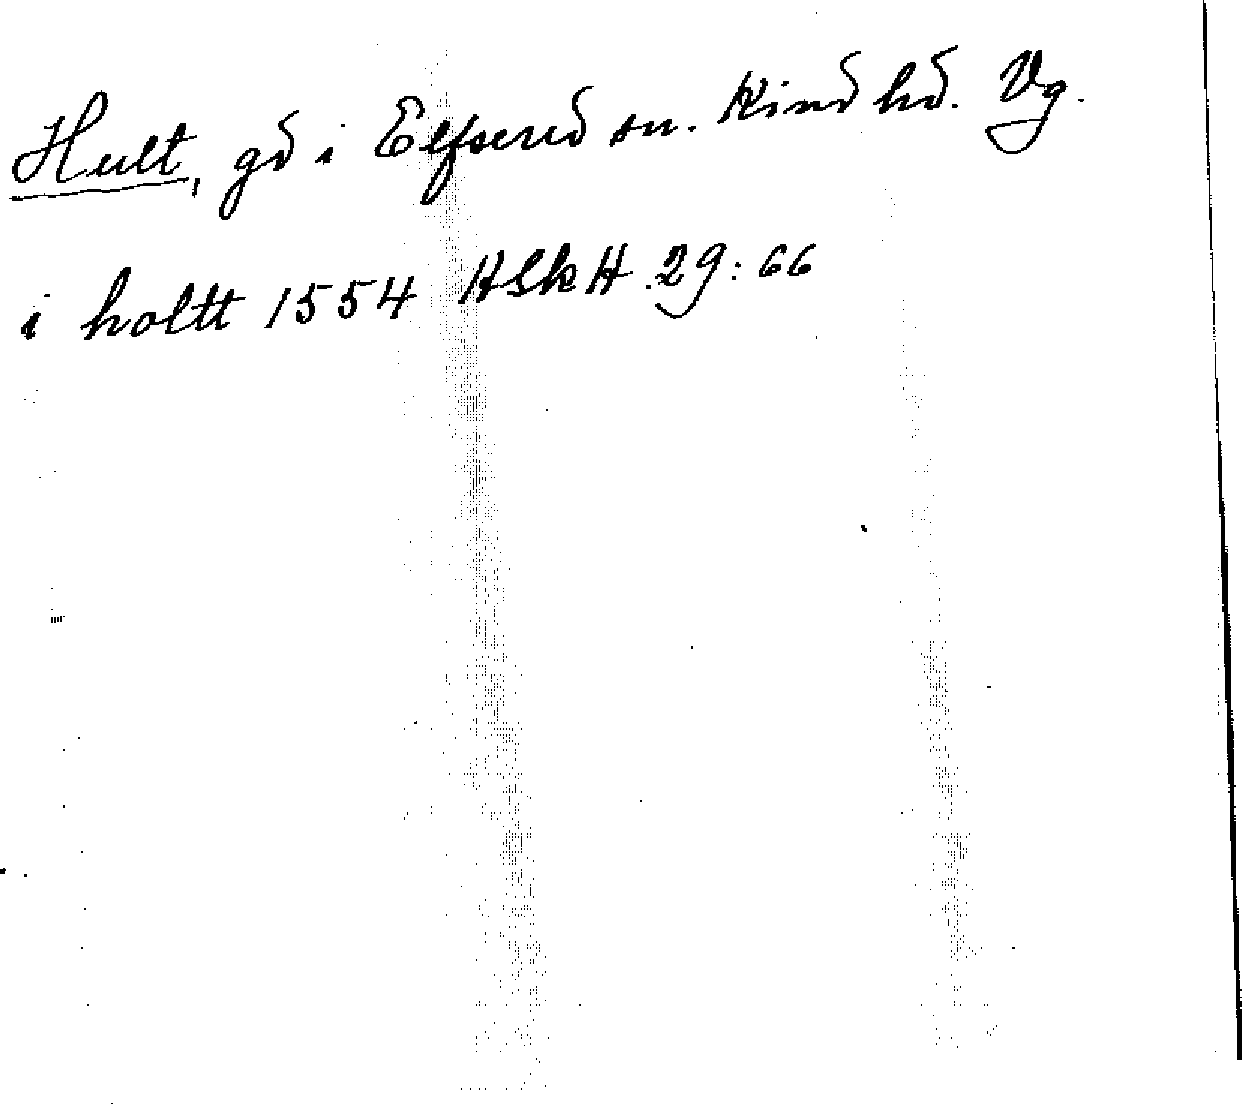 Hult, gd i Elfsered sn. Kind hd. Vg.
i holtt 1554 HSkH 29:66